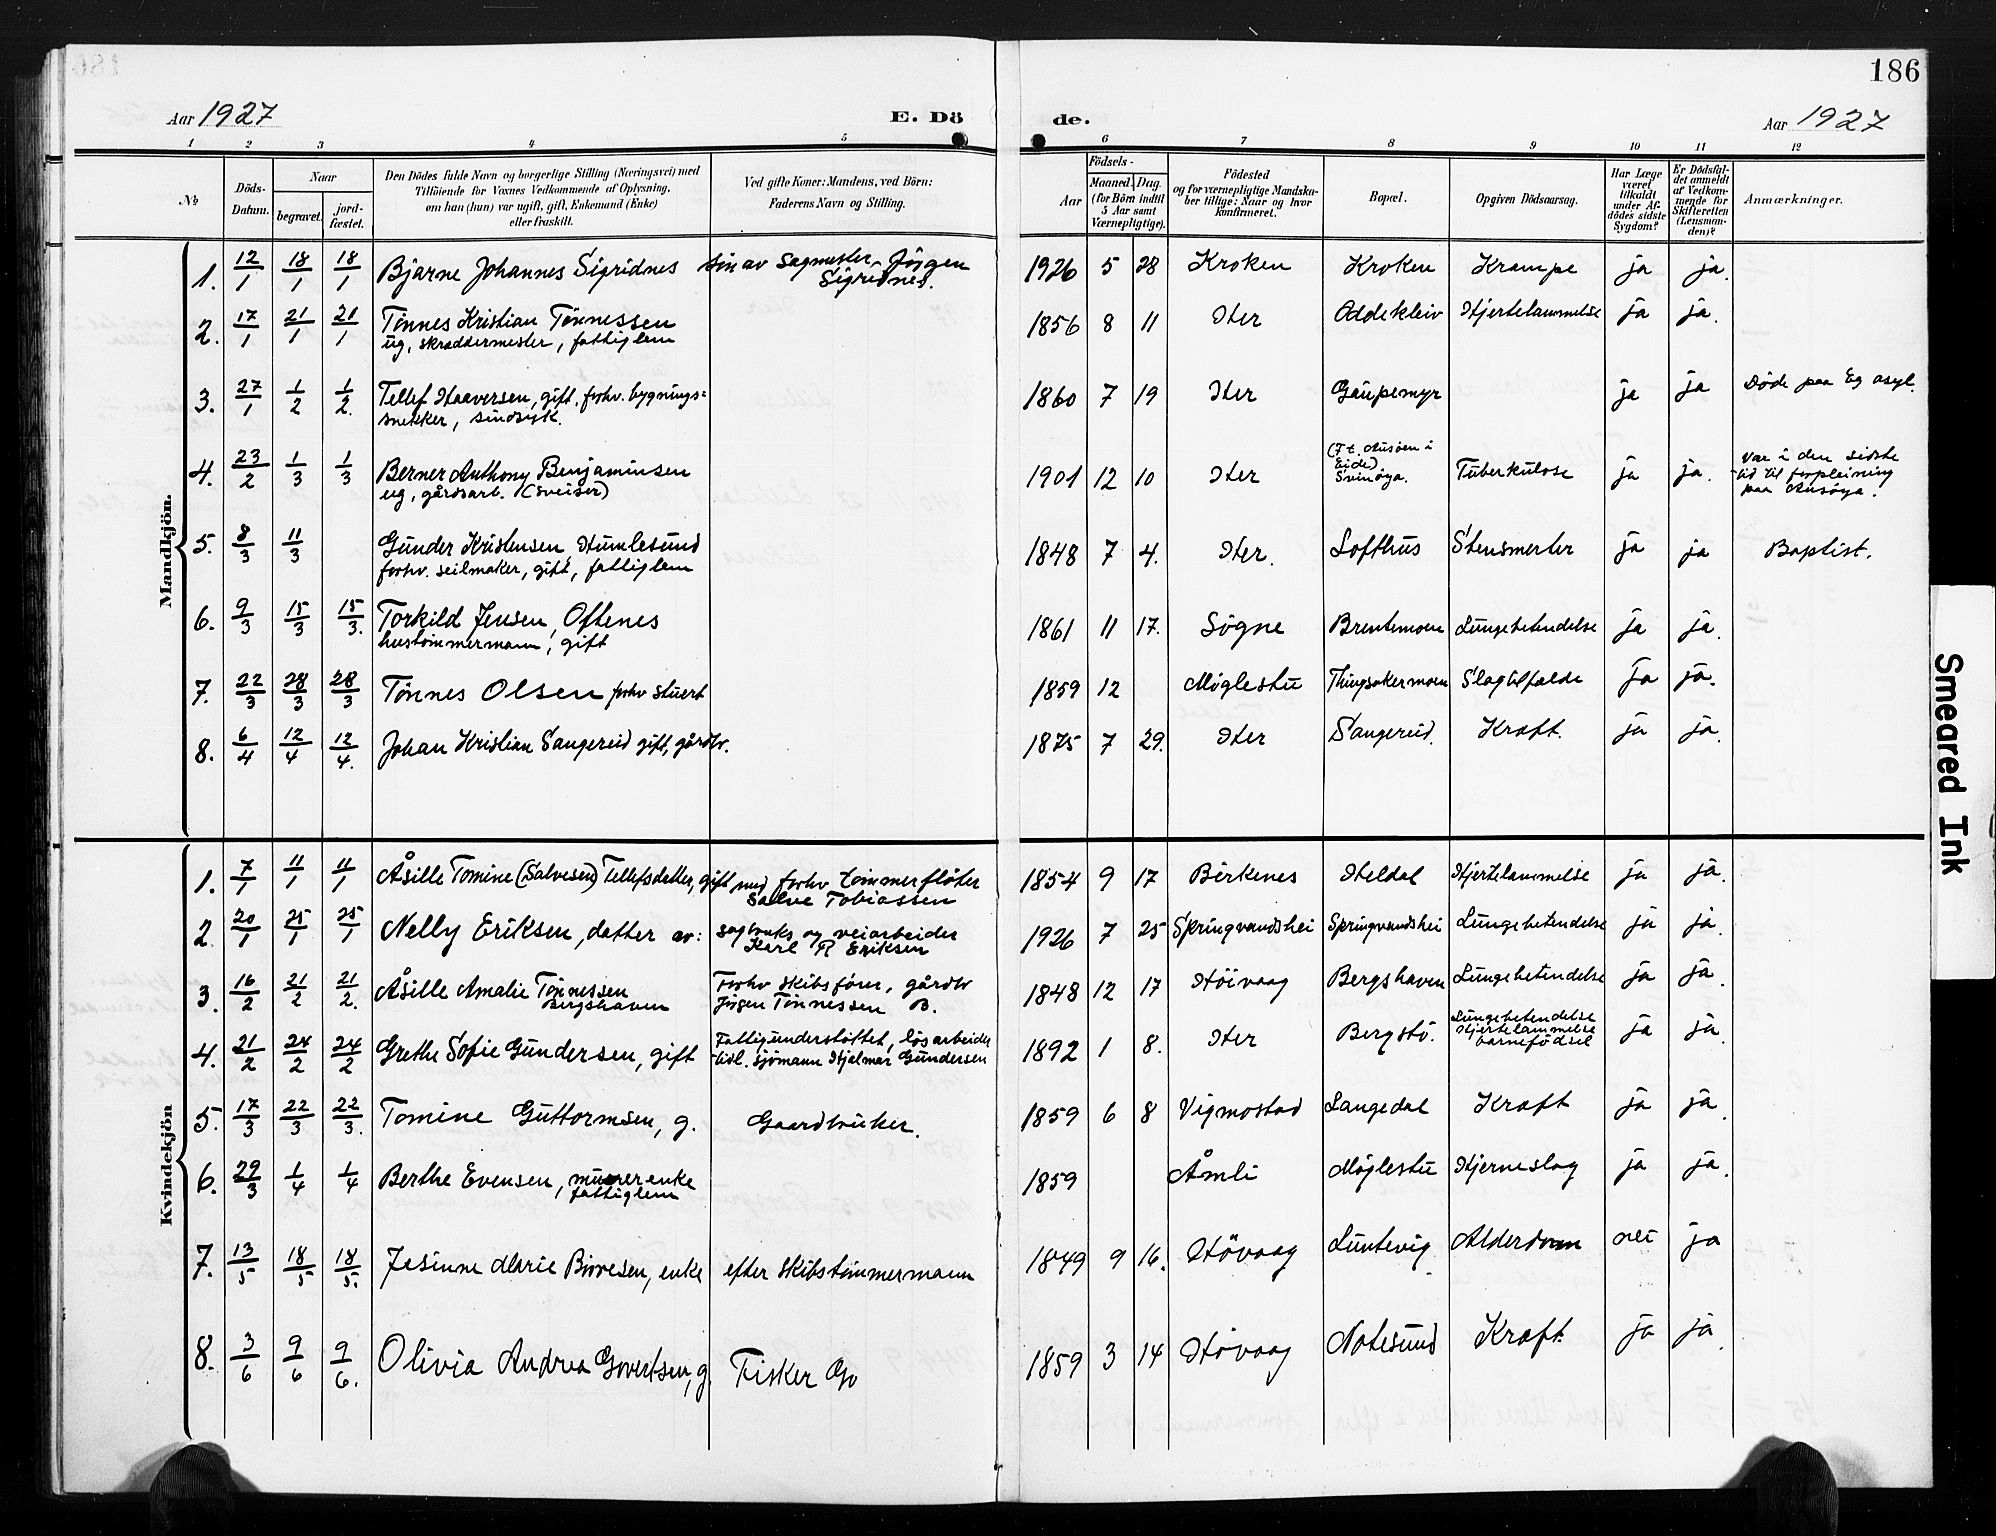 186
Aar 1927
E. Dö
de.
Aar 1927
1 2 3 4 5 6 7 8 9 10 11 12
№
Döds-Datum.
Naar
begravet.
jord-fæstet.
Den Dödes fulde Navn og borgerlige Stilling (Næringsvei) med
Tilföiende for Voxnes Vedkommende af Oplysning,
om han (hun) var ugift, gift, Enkemand (Enke)
eller fraskilt.
Ved gifte Koner: Mandens, ved Börn:
Faderens Navn og Stilling.
Födsels-
Aar
Maaned. Dag.
(for Börn indtil
5 Aar samt
Værnepligtige).
Födested
og for værnepligtige Mandska-
ber tillige: Naar og hvor
konfirmeret.
Bopæl.
Opgiven Dödsaarsag.
Har Læge
været
tilkaldt
under Af-
dödes sidste
Sygdom?
Er Dödsfal-
det anmeldt
af Vedkom-
mende for
Skifteretten
(Lensman-
den)?
Anmærkninger.
Mandkjön.
1. 12/1 18/1 18/1 Bjarne Johannes Sigridnes sön av sagmester Jörgen 1926 5 28 Kroken Kroken Krampe ja ja.
Sigridnes.
2. 17/1 21/1 21/1 Tönnes Kristian Tönnessen 1856 8 11 Her Oddekleiv Hjertelammelse ja ja.
ug, skreddermester, fattiglem
3. 27/1 1/2 1/2. Tellef Haaversen, gift, forhv. bygnings= 1860 7 19 Her Gaupemyr ja ja Döde paa Eg asyl.
snekker, sindsyk.
4. 23/2 1/3 1/3 Berner Anthony Benjaminsen 1901 12 10 Her (F. t. Ausöen i Eide) Svinöya. Tuberkulose ja ja. var i den sidste
ug, gårdsarb. (sveiser) tid til forpleining
paa Ausöya.
5. 8/3 11/3 Gunder Kristensen, Humlesund 1848 7 4. Her. Lofthus Stensmerter ja ja Baptist.
forhv. seilmaker, gift, fattiglem
6. 9/3 15/3 15/3. Torkild Jensen, Oftenes 1861 11 17. Sögne Brentemoen Lungebetendelse ja ja.
hustömmermann, gift
7. 22/3 28/3 28/3 Tönnes Olsen forhv stuert 1859 12 Möglestu Thingsakermoen Slagtilfælde ja ja.
8. 6/4 12/4 12/4. Johan Kristian Sangereid gift, gårdbr. 1875 7 29. Her Sangereid. Kræft. ja ja.
Kvindekjön
1. 7/1 11/1 11/1 Åsille Tomine (Salvesen) Tellefsdatter, gift med forhv tömmerflöter 1854 9 17 Birkenes Heldal Hjertelammelse ja ja.
Salve Tobiassen
2. 20/1 25/1 25/1 Nelly Eriksen, datter av: sagbruks og veiarbeider 1926 7 25 Springvandshei Springvandshei Lungebetendelse ja ja.
Karl R Eriksen
3. 16/2 21/2 21/2. Åsille Amalie Tönnessen Forhv skibsförer, gårdbr 1848 12 17 Höivaag Bergshaven Lungebetendelse ja ja.
Bergshaven Jörgen Tönnessen B.
4. 21/2 24/2 24/2 Grethe Sofie Gundersen, gift Fattigunderstöttet, lösarbeider 1892 1 8. Her Bergstö. Lungebetendelse Hjertelammelse barnefödsel ja ja.
tidl. sjömann Hjelmar Gundersen
5. 17/3 22/3 22/3. Tomine Guttormsen, g. Gaardbruker. 1859 6 8 Vigmostad Langedal Kræft ja ja.
6. 29/3 1/4 1/4 Berthe Evensen, murerenke 1859 Åmli Möglestu Hjerneslag ja ja.
fattiglem
7. 13/5 18/5 18/5. Jesinne Marie Birresen, enke efter skibstömmermann 1849 9 16. Hövaag Luntevig Alderdom nei ja
8. 3/6 9/6 9/6. Olivia Andrea Govertsen, g. Fisker Go 1859 3 14 Hövaag Notesund Kræft. ja ja.
Smeared Ink